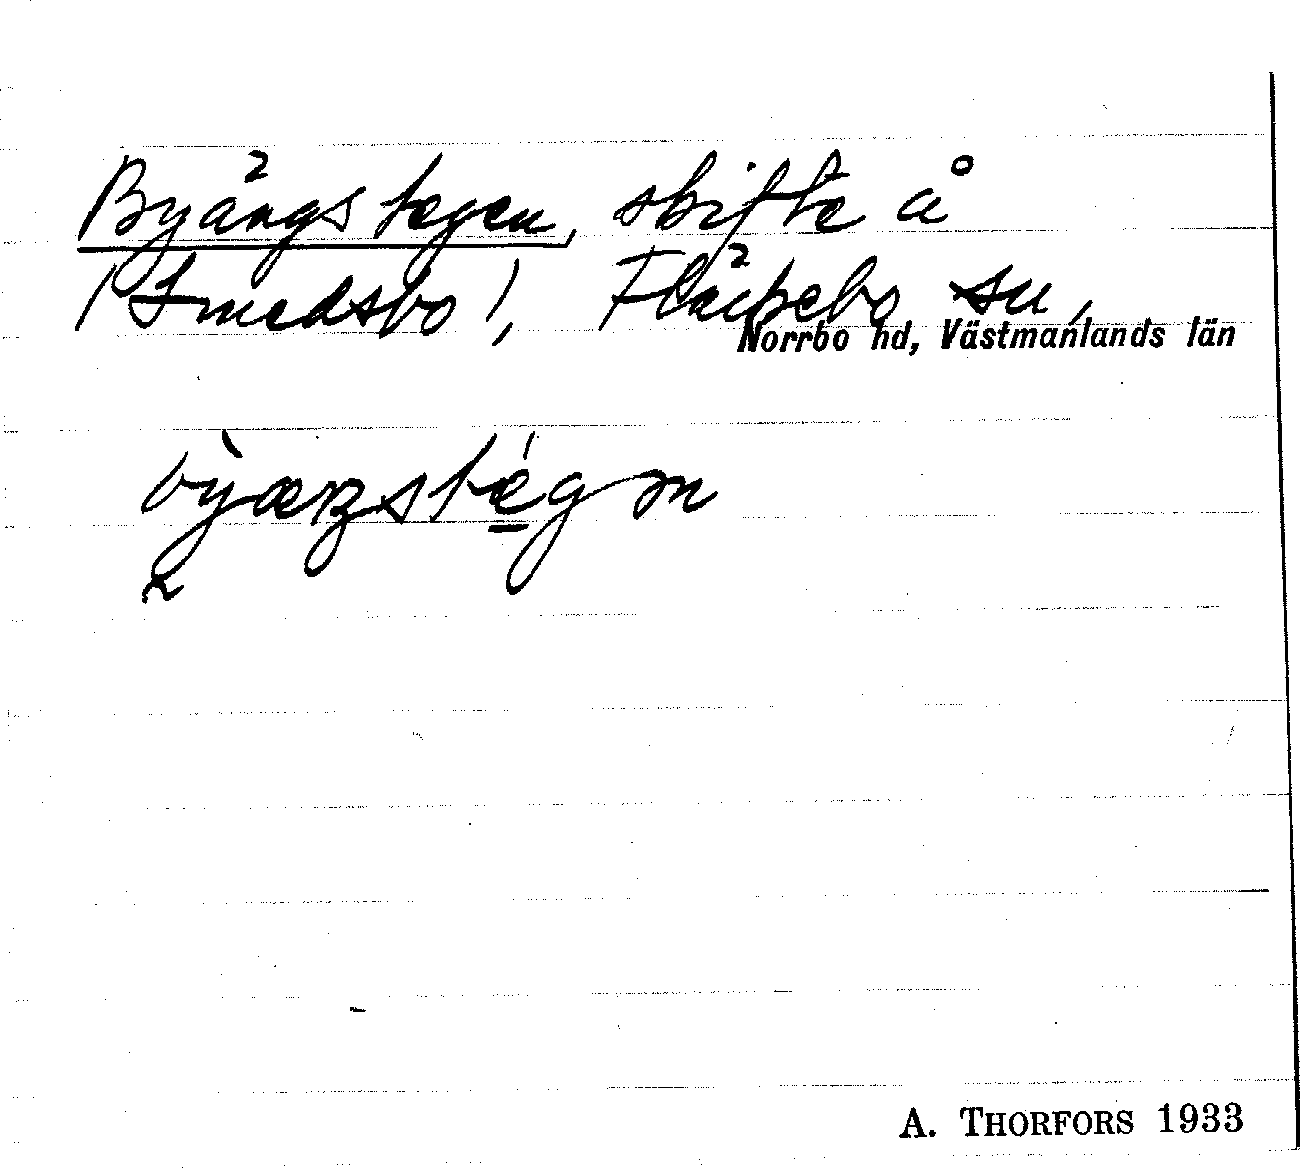 Byängstegen, skifte å
(Smedsbo), Fläckebo sn,
Norrbo hd, Västmanlands län
A. THORFORS 1933